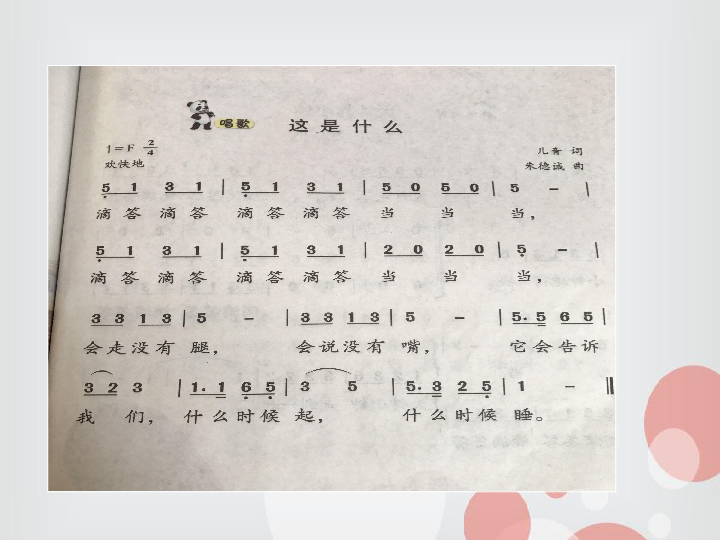 唱歌 这是什么
1=F 2/4
儿音 词
欢快地
朱德诚 曲
5 1 3 1 | 5 1 3 1 | 5 0 5 0 | 5 – |
滴答 滴答 滴答 滴答 当 当 当,
5 1 3 1 | 5 1 3 1 | 2 0 2 0 | 5 – |
滴答 滴答 滴答 滴答 当 当 当,
3 3 1 3 | 5 – | 3 3 1 3 | 5 – | 5. 5 6 5 |
会走没有 腿, 会说没有 嘴, 它会告诉
3 2 3 | 1. 1 6 5 | 3 5 | 5. 3 2 5 | 1 – ‖
我 们, 什么时候 起, 什么时候 睡。